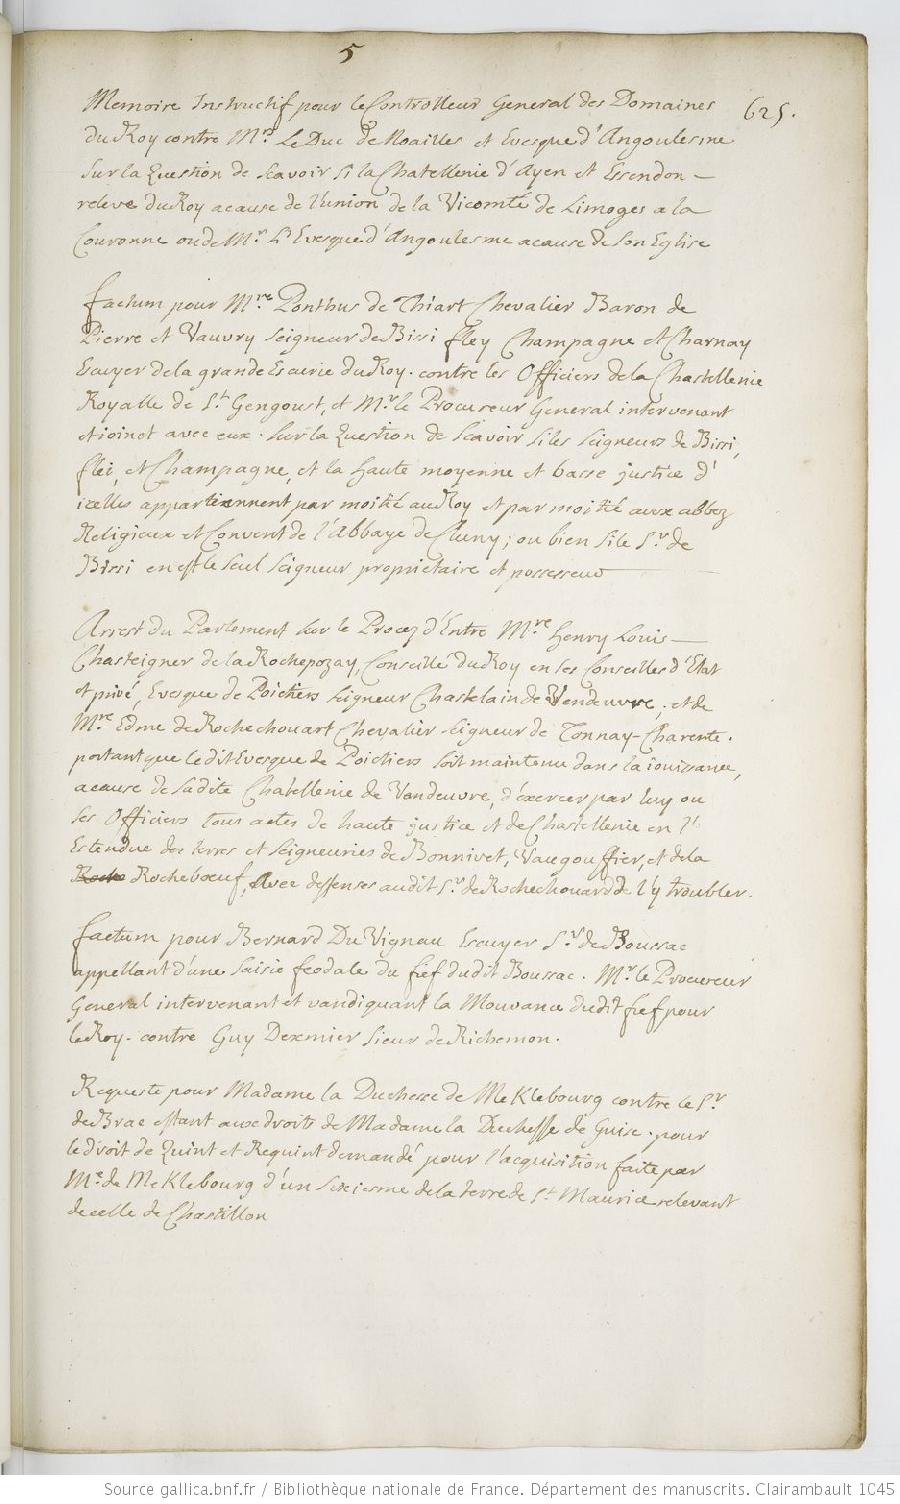 5
625.
Memoire Instructif pour le Controlleur General des Domaines
du Roy contre Mrs. Le Duc de Noailles et Evesque d'Angoulesme
Sur la Question de Scavoir Si la Chatellenie d'Ayen et Essendon –
releve du Roy a cause de l'union de la Vicomté de Limoges a la
Couronne ou de Mr. L'Evesque d'Angoulesme a cause de Son Eglise
factum pour Mre. Ponthus de Thiart Chevalier Baron de
Pierre et Vauvry Seigneur de Bissi fley Champagne et Charnay
Escuyer de la grande Escurie du Roy. contre les Officiers de la Chastellenie
Royalle de St. Gengoust, et Mr. le Procureur General intervenant
et joinct avec eux. Sur la Question de Scavoir Si les Seigneurs de Bissi,
flei, et Champagne, et la haute moyenne et basse justice d'
icelles appartiennent par moitié au Roy et par moitié aux abbez
Religieux et Convent de l'Abbaye de Cluny; ou bien Si le Sr. de
Bissi en est le Seul Seigneur proprietaire et possesseur
Arrest du Parlement sur le Procez d'Entre Mre. henry Louis –
Chasteigner de la Rochepozay, Conseillé du Roy en ses Conseilles d'Etat
et privé, Evesque de Poictiers Seigneur Chastelain de Vendeuvre; et de
Mre. Edme de Rochechouart Chevalier Seigneur de Tonnay-Charente.
portant que le dit Evesque de Poictiers Soit maintenu dans la iouissance,
a cause de Sadite Chatellenie de Vandeuvre, d'exercer par luy ou
ses Officiers tous actes de haute justice et de Chastellenie en l'
Estendue des terres et Seigneuries de Bonnivet, Vaugouffier, et de la
Roche Rocheboeuf, Avec deffenses audit Sr. de Rochechouard de l'y troubler.
factum pour Bernard Du Vignau Escuyer Sr. de Boussac
appellant d'une Saisie feodale du fief dudit Boussac. Mr. le Procureur
General intervenant et vandiquant la Mouvance dudit fief pour
le Roy. contre Guy Dexmier Sieur de Richemon.
Requeste pour Madame la Duchesse de MeKlebourg contre le Sr.
de Brae estant aux droits de Madame la Duchesse de Guise. pour
le droit de Quint et Requint demandé pour l'acquisition faite par
Me. de MeKlebourg d'un Sixiesme de la terre de St. Maurice relevant
de celle de Chastillon
Source gallica.bnf.fr / Bibliothèque nationale de France. Département des manuscrits. Clairambault 1045